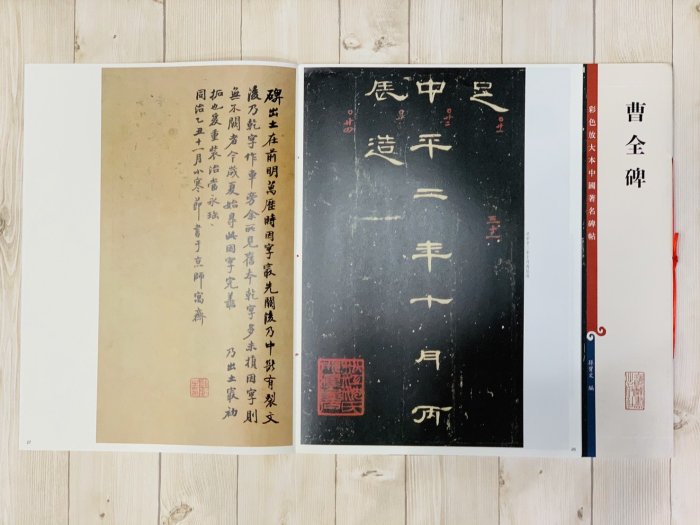 曹全碑
彩色放大本中國著名碑帖
孫寶文 編
足
中平二年十月丙
辰造
三十六
碑出土在前明萬歷時因字最先闕後乃中斷有裂文
後乃乾字作車旁余所見舊本乾字多未損因字則
無不闕者今歲夏始得此因字完善 乃出土最初
拓也爰重裝治當永珍
同治乙丑十一月小寒節書于京師寓齋